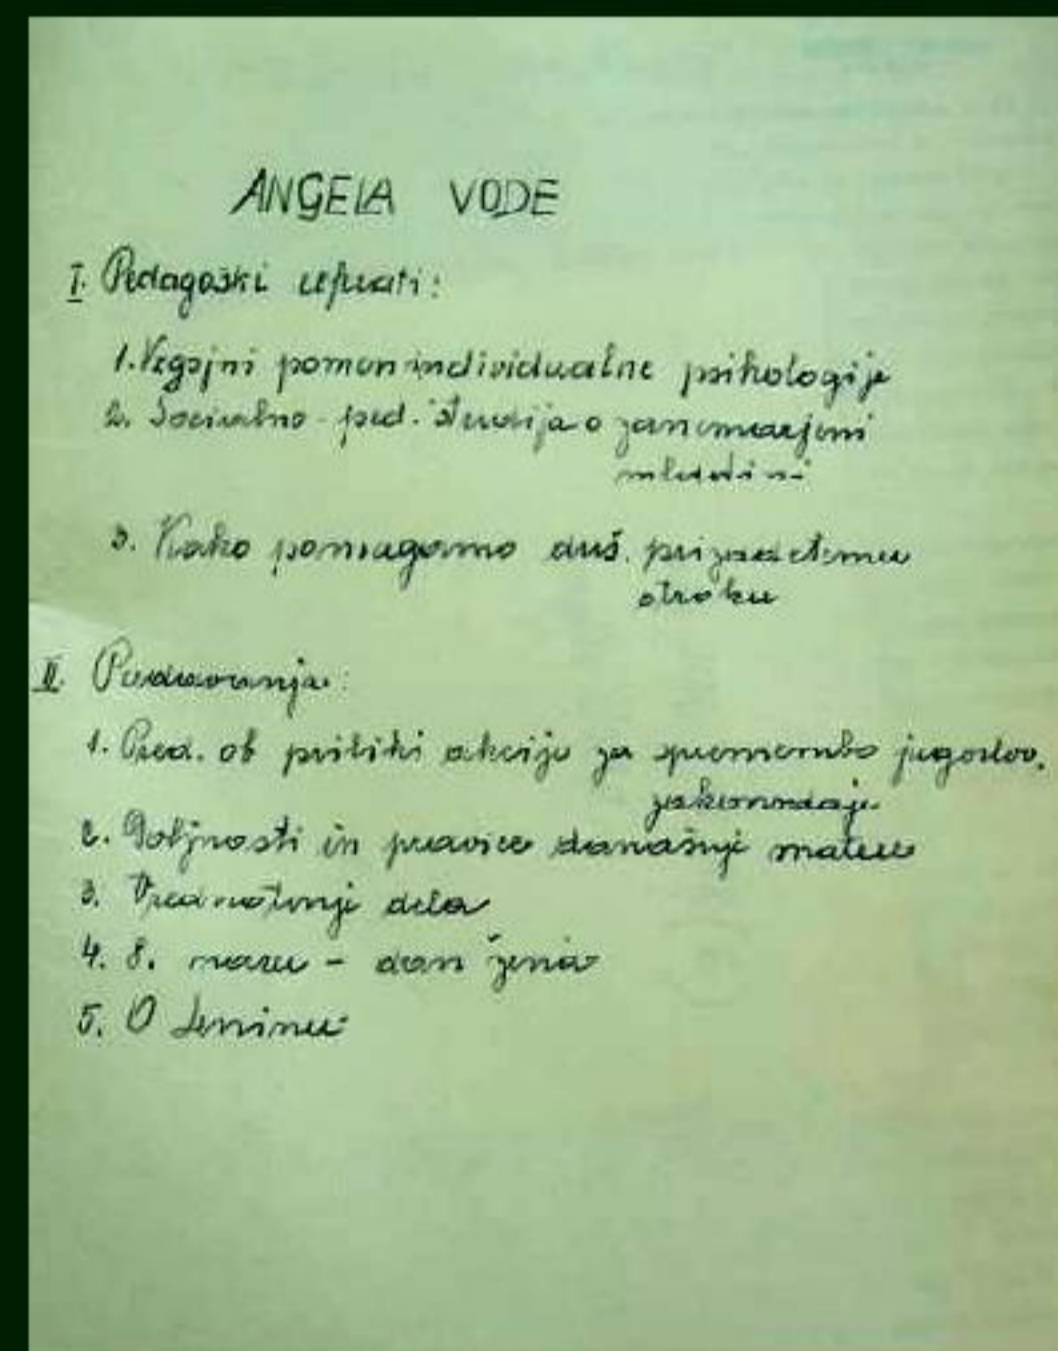 ANGELA VODE
I. Pedagoški referati:
1. Vzgojni pomen individualne psihologije
2. Socialno-ped. študija o zanemarjeni
mladini
3. Kako pomagamo duš. prizadetemu
otroku
II. Predavanja:
1. Pred. ob priliki akcije za spremembo jugoslov.
zakonodaje
2. Dolžnosti in pravice današnje matere
3. Vrednotenje dela
4. 8. marec - dan žena
5. O Leninu